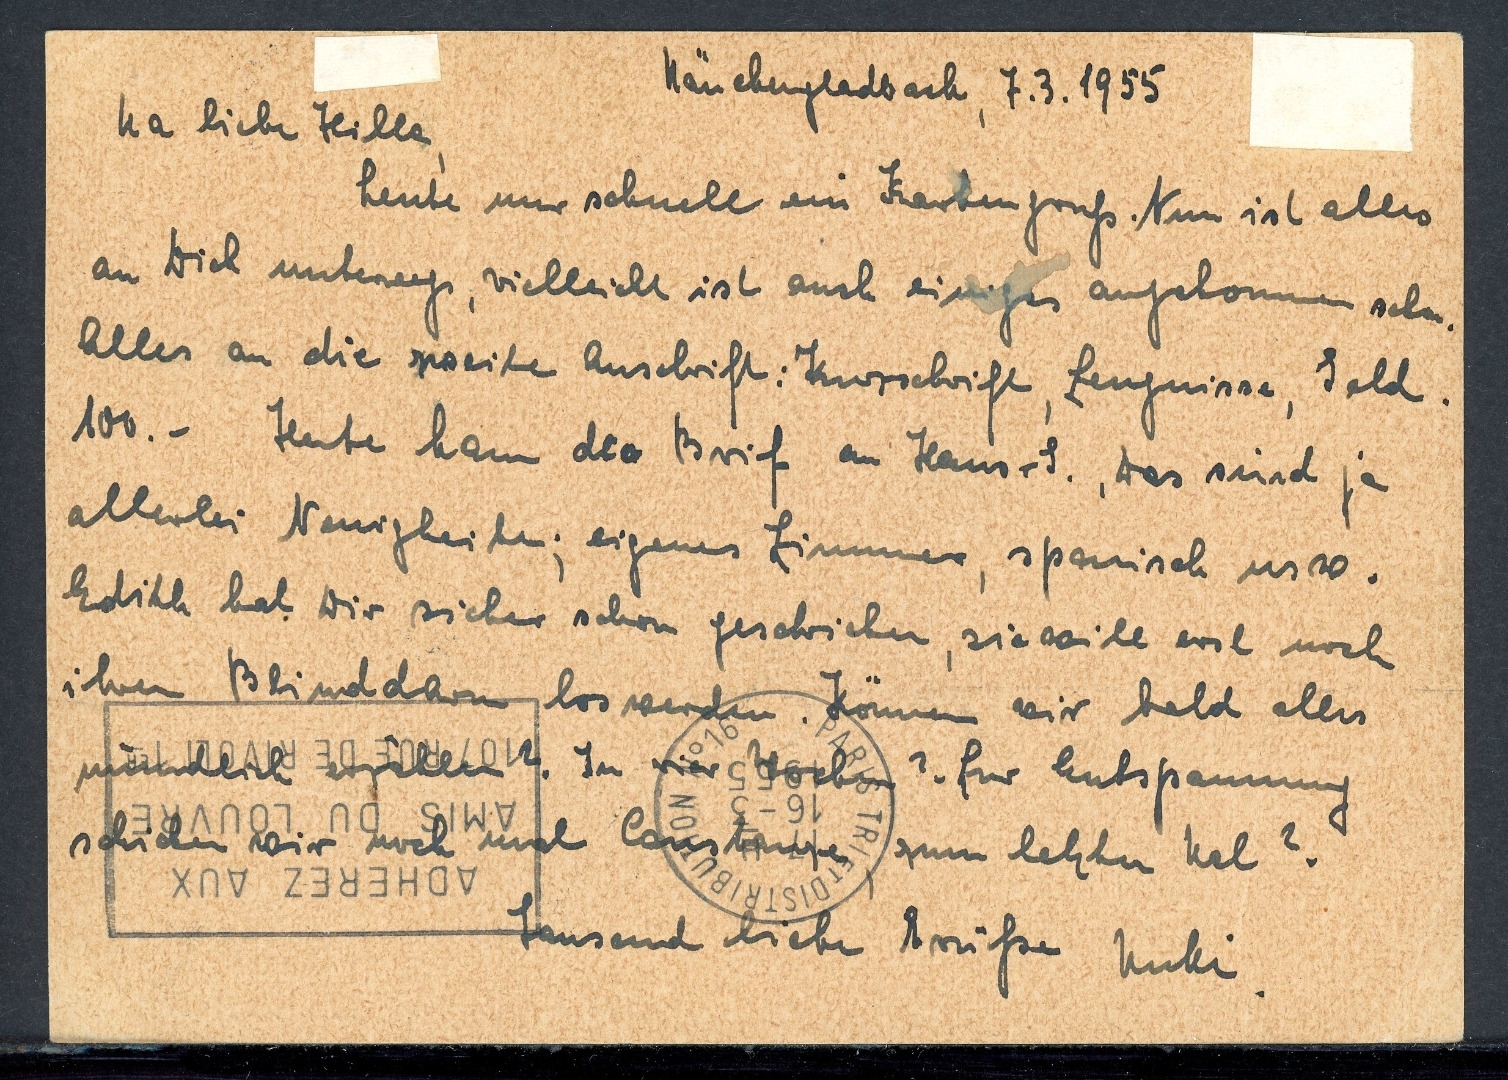 Mönchengladbach, 7.3.1955
Na liebe Hilla,
heute nur schnell ein Kartengruß. Nun ist alles
an Dich unterwegs, vielleicht ist auch einiges angekommen schon.
Alles an die zweite Anschrift: Kurzschrift, Zeugnisse, Geld.
100.- Heute kam der Brief an Hans-G., Das sind ja
allerlei Neuigkeiten; eigenes Zimmer, spanisch usw.
Edith hat Dir sicher schon geschrieben, sie will erst noch
ihren Blinddarm loswerden. Können wir bald alles
mündlich erzählen?. In vier Wochen?. Zur Entspannung
schicken wir noch mal zum letzten Mal?.
Tausend liebe Grüße
ADHEREZ AUX
AMIS DU LOUVRE
107 RUE DE RIVOLI 1er
PARIS TRI ET DISTRIBUTION N°16
17 H
16-3
1955